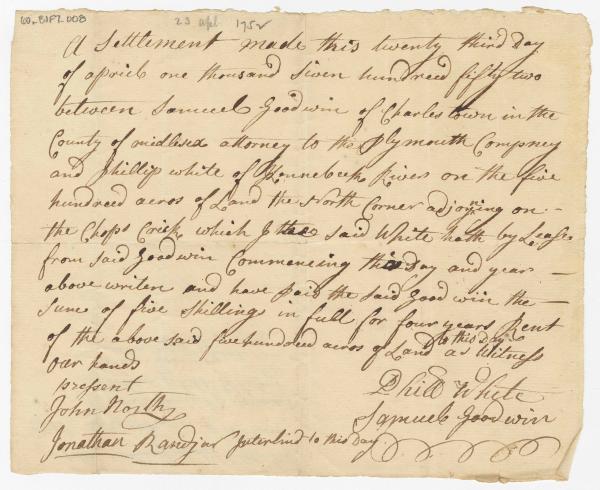 60.81F2.008
23 apl 1752
A Settlement made this twenty third Day
of april one thousand Siven hundreed fifty two
between Samuel Goodwin of Charlestown in the
County of midlesex attorney to the Plymouth Compeney
and Phillip white of Kennebeck River on the five
hundreed acros of Land the North Corner adjoyning on —
the Chops Crick which I the said White hath by Lease
from said Goodwin Commencing this Day and year —
above writen and have paid the said Good win the —
sume of five shillings in full for four years Rent
to this Day
of the above said five hundreed acros of Land as Witness
our hands
pressent
Phill White
John North
Samuel Goodwin
Jonathan Interlind to this Day